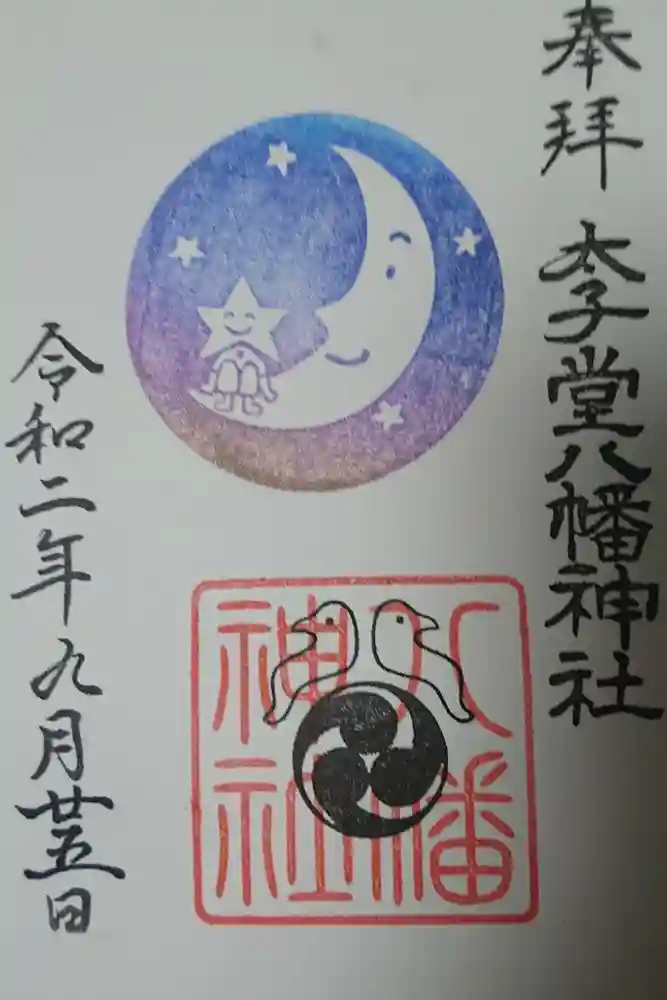 奉拝 太子堂八幡神社
八幡
神社
令和二年九月廿五日